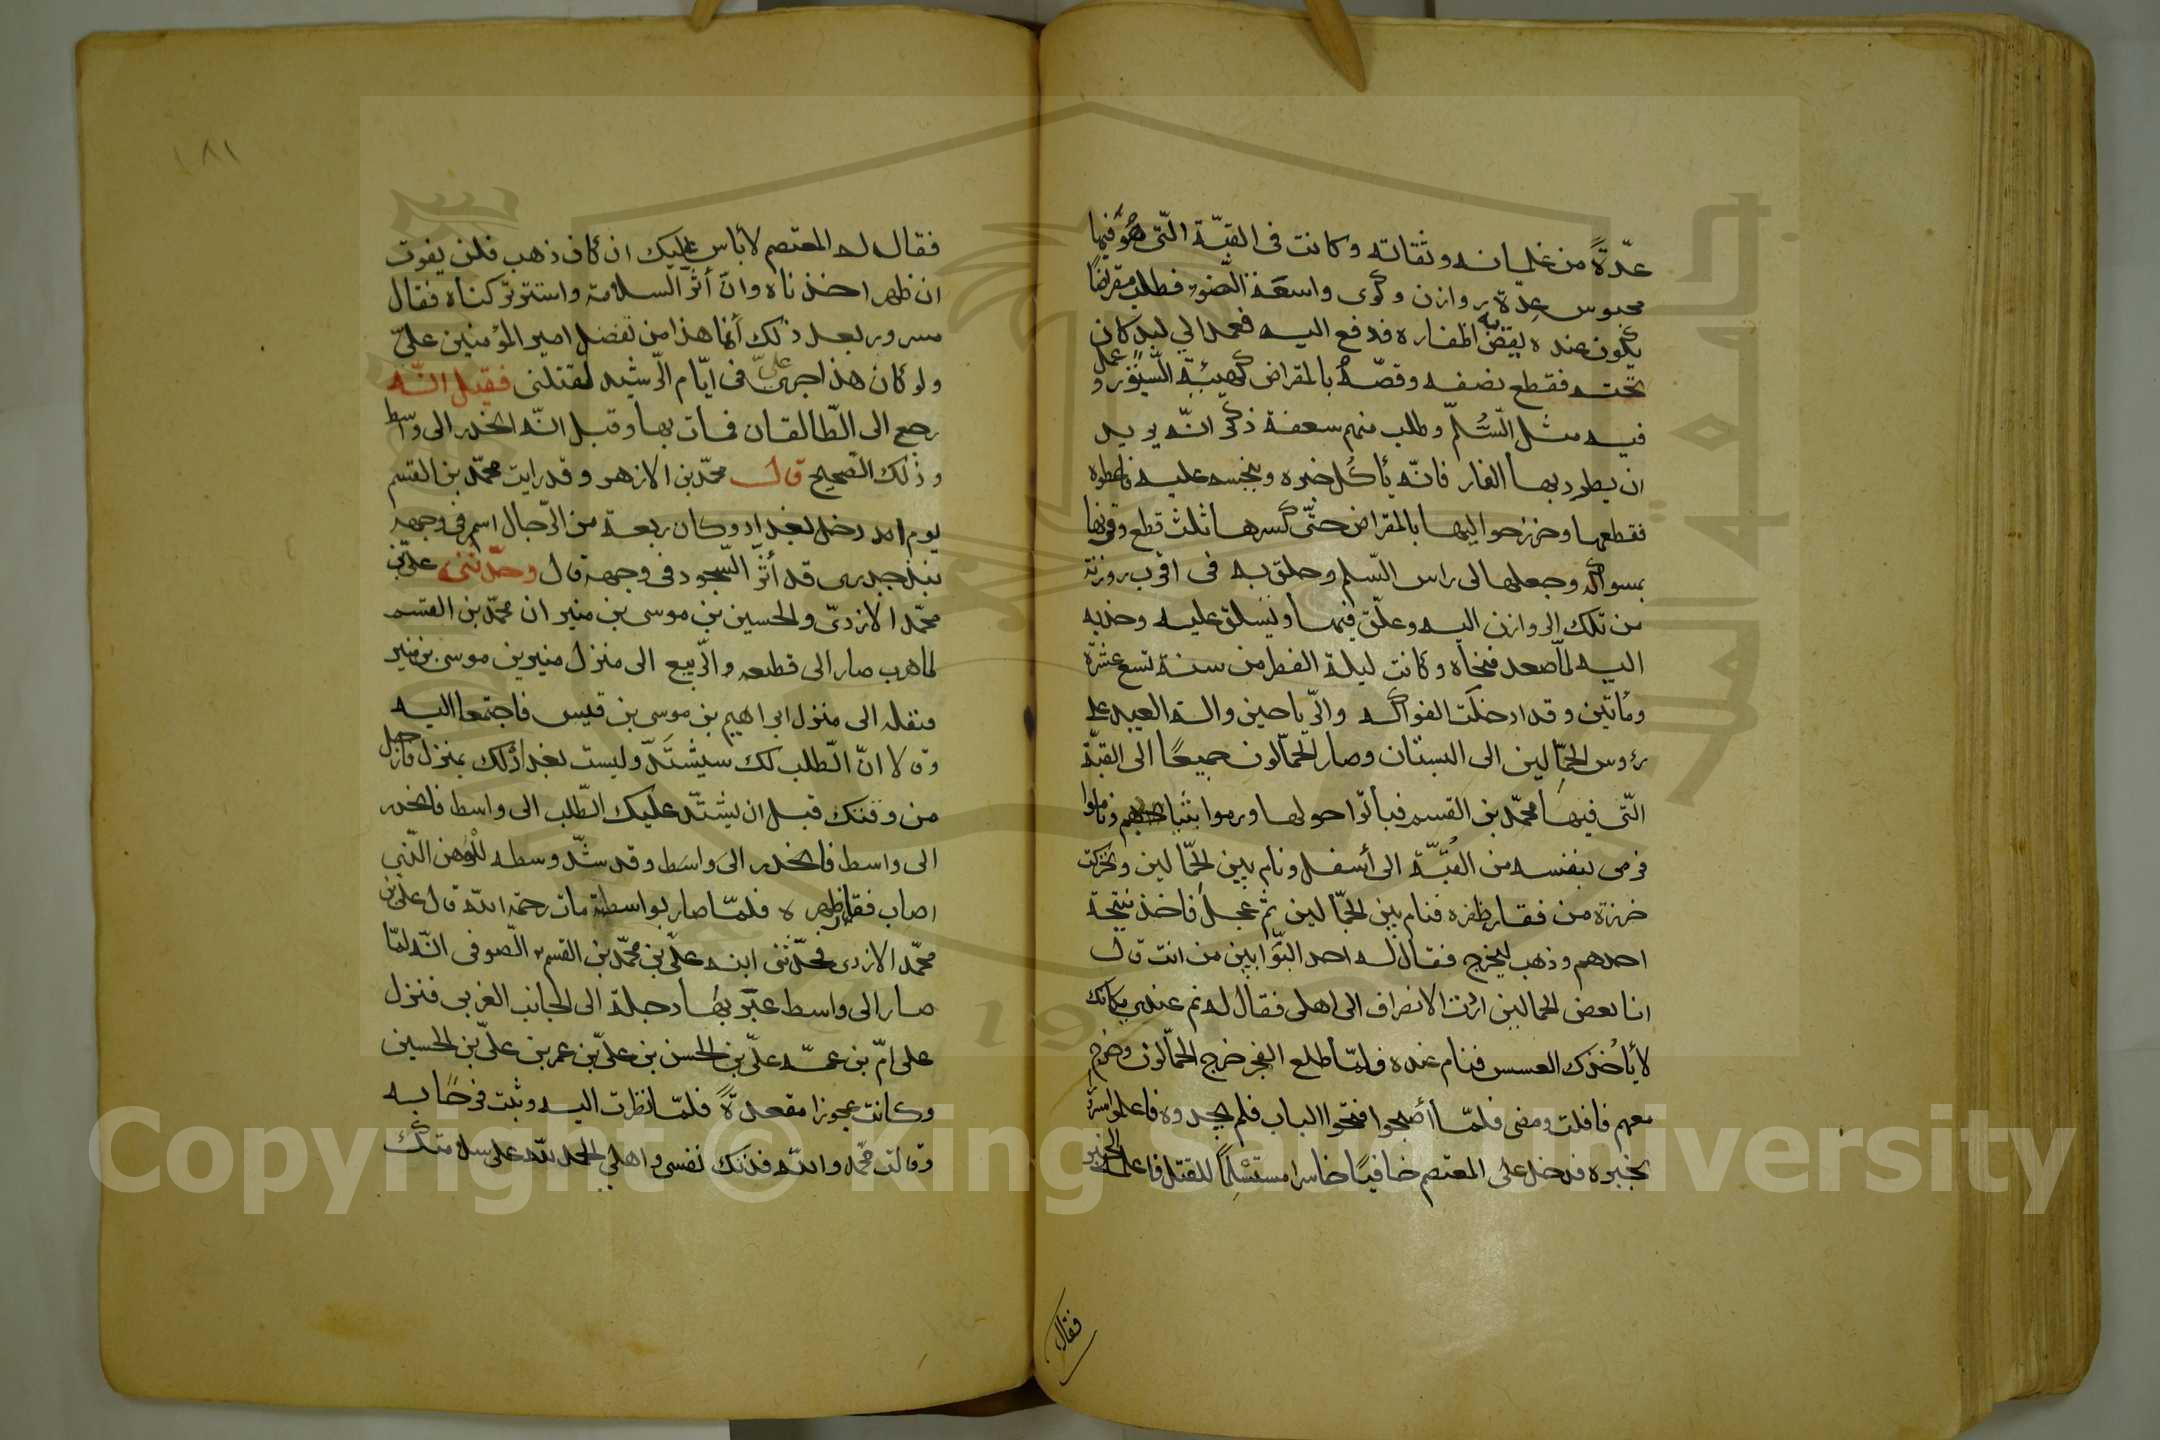 عدّةً من غلمانه وثقاته وكانت فى القبّة الّتى هو فيها
محبوس عدّة روازن وكوى واسعة الضوء فطلب مقراضا
يكون عنده يقض به اظفاره فدفع اليه فعمد الى لبد كان
تحته فقطع نصفه وقصّه بالمقراض كهيئة السّيور وعمل
فيه مثل السّلّم وطلب منهم سعفة ذكر انّه يريد
ان يطرد بها الفار فانّه يأكل خبزه وينجسه عليه فاعطوه
فقطعها وخرز حواليها بالمقراض حتّى كسرها ثلث قطع وقرنها
بسواكه وجعلها الى راس السّلم وحلق به فى اقرب روزنة
من تلك الروازن اليه وعلّق فيها وتسلق عليه وجذبه
اليه لمّا صعد فنجاه وكانت ليلة الفطر من سنة تسع عشرة
ومائتين وقد ادخلت الفواكه والرّياحين والة العيد على
رؤس الحمّالين الى البستان وصار الحمّالون جميعًا الى القبّة
الّتى فيها محمّد بن القسم فباتوا حولها ورموا بثيابهم وناموا
فرمى بنفسه من القبّة الى أسفل ونام بين الحمّالين وتحركت
خرزة من فقار ظهره فنام بين الحمّالين ثم عجل فاخذ نتيجة
احدهم وذهب ليخرج فقال له احد البوّابين من انت قال
انا بعض الحمالين اردت الانصراف الى اهلى فقال له نم عندى مكانك
لا يأخذك العسس فنام عنده فلمّا طلع الفجر خرج الحمّالون وخرج
معهم فافلت ومضى فلمّا أصبحوا فتحوا الباب فلم يجدوه فاعلموا مسرورا
بخبره فدخل على المعتصم حافيًا حاسرا مستسلمًا للقتل فاعلمه الخبر
فقال
١٨١
فقال له المعتصم لا بأس عليك ان كان ذهب فلن يفوت
ان ظهر اخذناه وان أثر السلامة واستتر تركناه فقال
مسرور بعد ذلك أنما هذا من تفضل امير المؤمنين علىّ
ولو كان هذا جرى علىّ فى ايّام الرّشيد لقتلنى فقيل انّه
رجع الى الطّالقان فمات بها وقيل انّه انحدر الى واسط
وذلك الصّحيح قال محمّد بن الازهر وقد رايت محمّد بن القسم
يوم ادخل بغداد وكان ربعة من الرّجال اسمر فى وجهه
نبذ جدرى قد أثّر السّجود فى وجهه قال وحدّثنى علىّ بن
محمّد الازدىّ والحسين بن موسى بن منير ان محمّد بن القسم
لما هرب صار الى قطيعه والرّبيع الى منزل منير بن موسى بن منير
فنقله الى منزل ابراهيم بن موسى بن قيس فاجتمعا اليه
وقالا انّ الطّلب لك سيشتدّ وليست بغداد لك بمنزل فارحل
من وقتك قبل ان يشتدّ عليك الطّلب الى واسط فانحدر
الى واسط فانحدر الى واسط وقد شدّ وسطه للوهن الّذى
اصاب فقار ظهره فلمّا صار بواسط مات رحمه اللّه قال علىّ بن
محمّد الازدى فحدّثنى ابنه علىّ بن محمّد بن القسم الصّوفى انّه لمّا
صار الى واسط عبر بها دجلة الى الجانب الغربى فنزل
على امّ بن عمّه علىّ بن الحسن بن علىّ بن عمر بن علىّ بن الحسين
وكانت عجوزا مقعدةً فلمّا نظرت اليه وثبت فرحًا به
وقالت محمّد واللّه فدتك نفسى واهلى الحمد للّه على سلامتك
Copyright © King Saud University